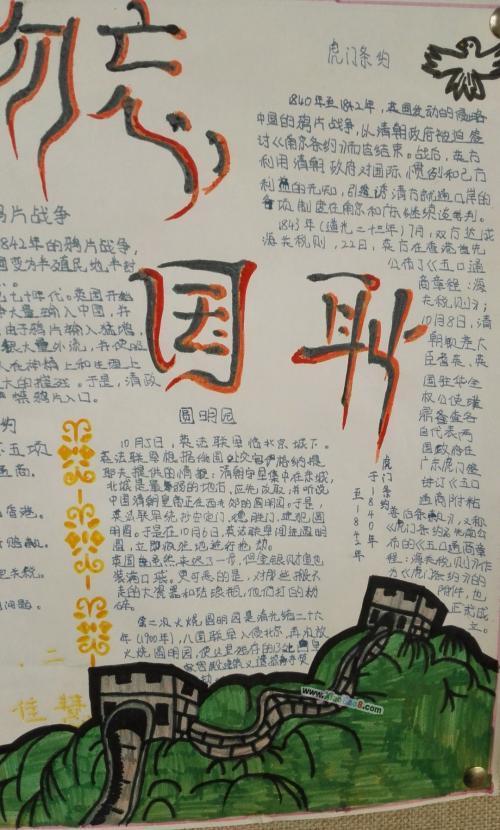 勿忘
国耻
鸦片战争
842年的鸦片战争,
国变为半殖民地半封
七十年代。英国开始
大量输入中国,并
由于鸦片输入猛增,
大量外流,并使吸
人在神精上和生理上
大的摧残。于是,清政
禁鸦片入口。
约
五项
通商。
香港。
圆明园
10月5日,英法联军临北京城下。
英法联军根据俄国处交
耶夫提供的情报:清朝守军集中在东城,
北城是最薄弱的地方,应先攻取,并听说
中国清朝皇帝正在西北郊的圆明园。于是,
英法联军绕抄安定门、德胜门,进犯圆
明园。于是在10月6日,英法联军闯进圆明
园,立即疯狂地进行抢劫。
英国虽然来迟了一步,但金银财宝也
装满口袋。更可恶的是,对那些搬不
走的大瓷器和珐琅瓶,他们打的粉
碎。
第二次火烧圆明园是清光绪二十六
年(1900年),八国联军入侵北京,再次放
火烧圆明园,使这里残存的13处皇室
虎门条约
1840年至1842年,英国发动的侵略
中国的鸦片战争,以清朝政府被迫签
讨《南京条约》而告结束。战后,英方
利用清朝政府对国际惯例和己方
利益的无知,引诱清方就通口岸的
各项制度在南京和广东继续谈判。
1843年(道光二十三年)7月,双方达成
海关税则,22日,英方在香港首先
公布了《五口通
商章程:海
关税则》;
10月8日,清
朝钦差大
臣耆英、英
国驻华全
权公使璞
鼎查各
自代表两
国政府在
广东虎门签
订《五口
通商附粘
善后条款》,又称
《虎门条约》,先前公
布的《五口通商章
程:海关税则》作
为《虎门条约》的
附件,也
正式成
立。
虎门条约
于1840年
至1842年
二
佳慧